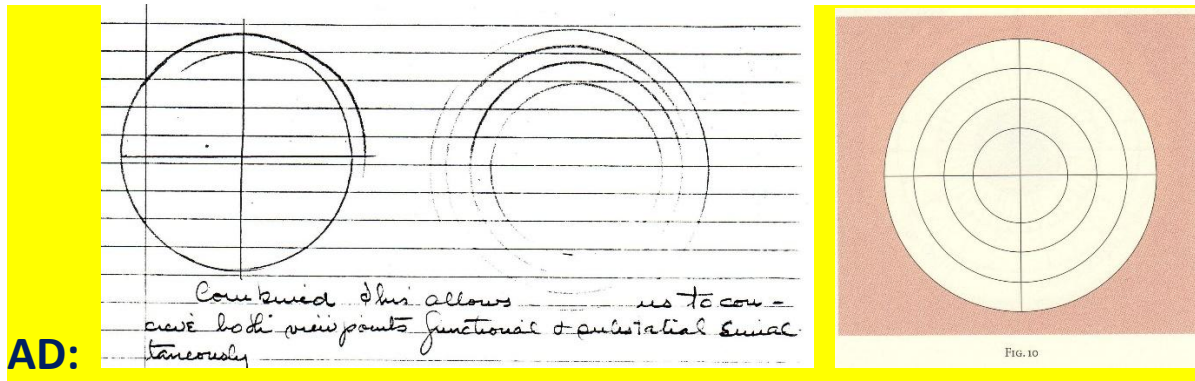 Combined this allows us to con-
ceive both viewpoints functional & substatial simul
taneously
AD:
FIG. 10